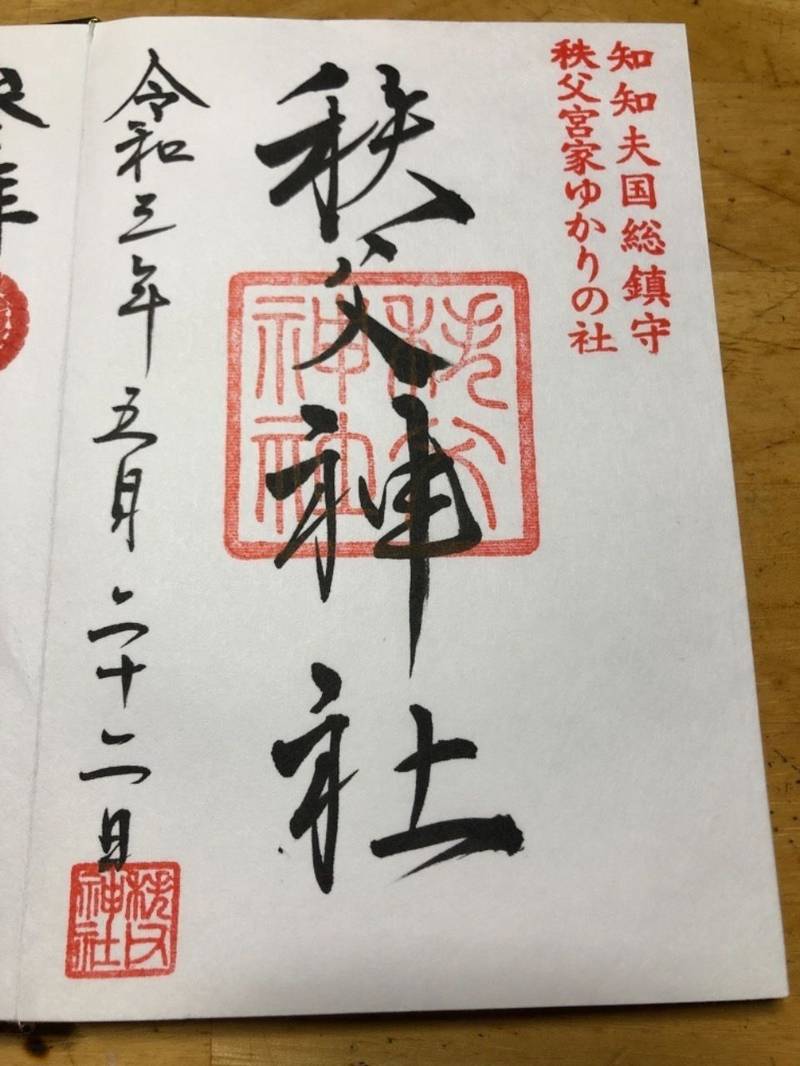 知知夫国総鎮守
秩父宮家ゆかりの社
秩父神社
秩父
神社
令和三年五月二十二日
秩父
神社